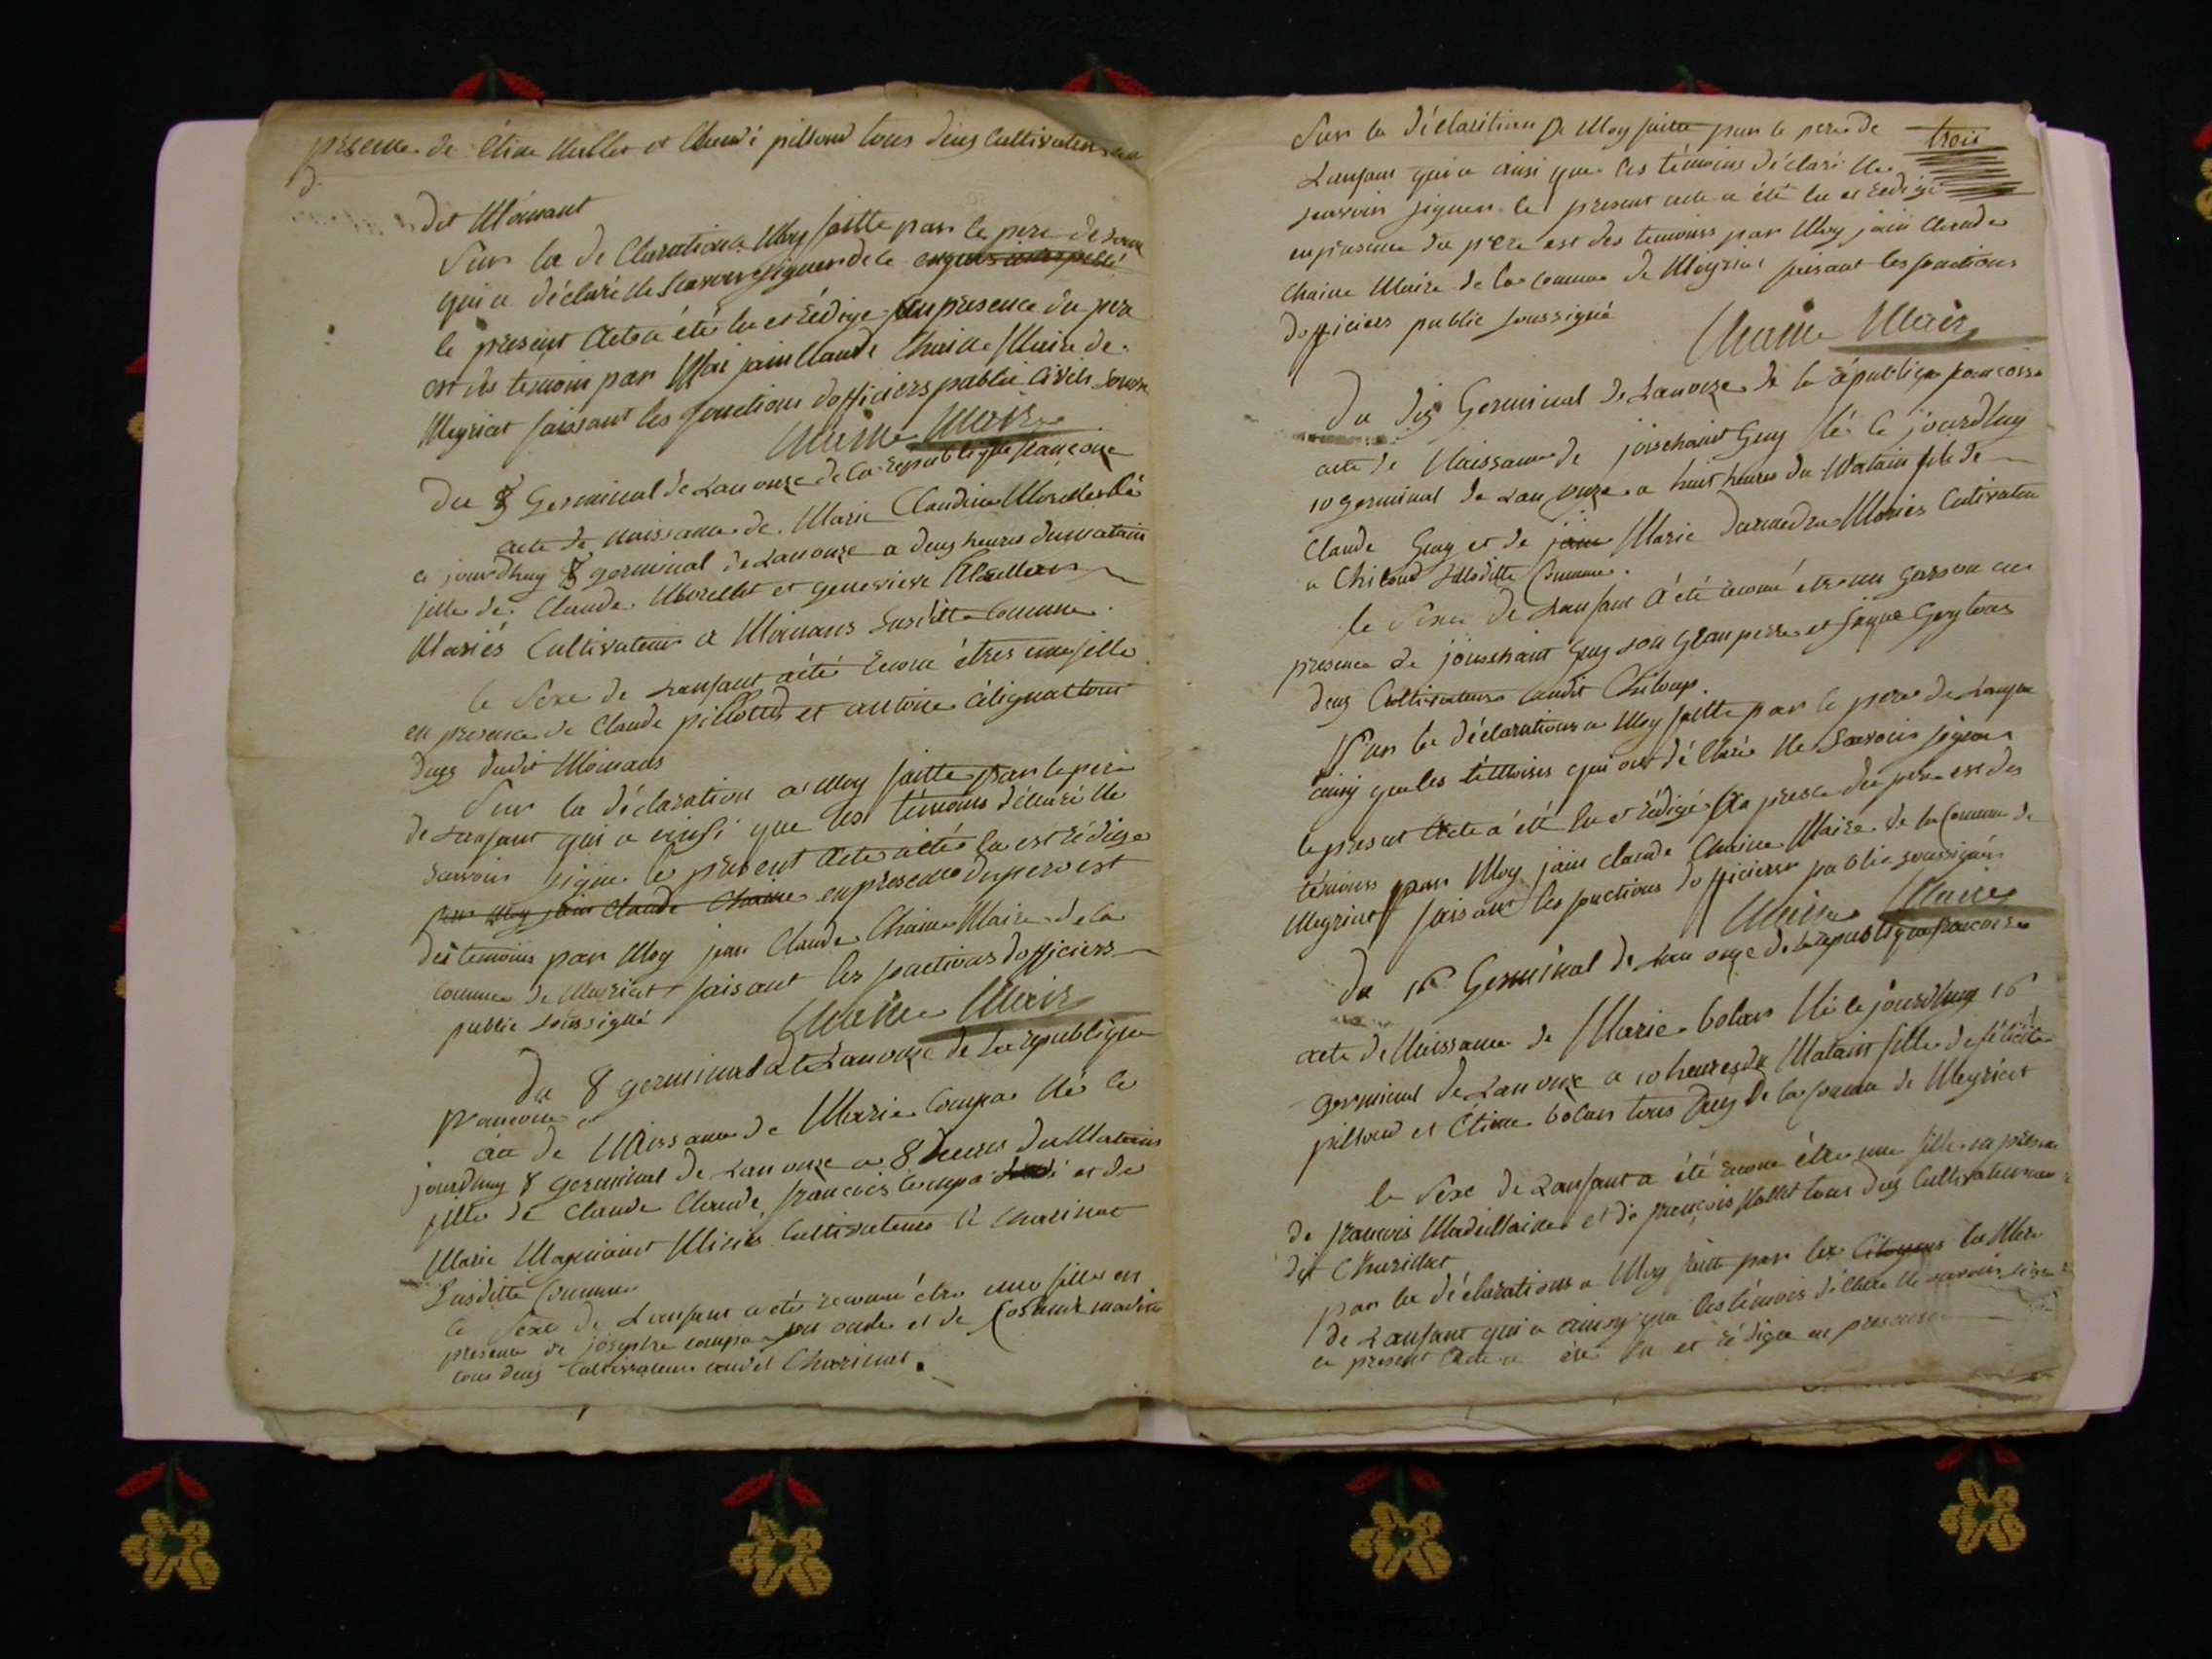 presence de Etine et Claude pilloud tous deux Cultivateurs au
dit Moinant
Sur la de Claration a Moy faitte par le pere de
qui a déclaré Ne Scavoir signer de ce
le present Acte a été lu et Rédige en presence du pere
est des temoin par Moi jain Claude Chaine Maire de
Meyriat faisant les fonctions dofficiers public Civils
Chaine Maire
Du 8 Germinal de Lan onze de la republique françoise
acte de Naissance de Marie Claudine Morellet Né
ce jourdhuy 8 germinal de Lan onze a deux heures du matain
fille de Claude Morellet et genevieve
Mariés Cultivateur a Moinans Susditte Comune
le Sexe de Lanfant a été Reconu étres une fille
en presence de Claude pilloud et antoine tout
deux dudit Moinans
Sur la déclaration a Moy faitte par le pere
de Lanfant qui a ainsi que les témoins déclaré Ne
Savoir signe le present Acte a été lu est rédige
par Moy jain Claude Chaine en presence du pere est
des temoins par Moy jean Claude Chaine Maire de la
Comune de Meyriat faisant les fonctions dofficiers
public soussigné
Chaine Maire
Du 8 germinal de Lan onze de la republique
francoise
de Naissance de Marie Compa Né le
jourdhuy 8 germinal de Lan onze a 8 heures du Matains
fille de Claude Claude francois Compa et de
Marie Mariés Cultivateurs a Charinat
Susditte Comune
le Sexe de Lanfant a été reconu étre une fille en
presence de josephe compa son oncle et de
tous deux Cultivateurs audit Charinat.
Sur la Déclaration De Moy faitte par le pere de
trois
Lanfant qui a ainsi que les témoins Déclaré Ne
scavoir signer le present acte a été lu et Redigé
en presence du pere est des temoins par Moy jain Claude
Chaine Maire de la Comune de Meyriat faisant les fonctions
dofficiers public soussigné
Chaine Maire
Du dix Germinal de Lan onze de la république francoise
acte de Naissance de Guy Né le jourdhuy
10 germinal de Lan onze a huit heures du Matain fils de
Claude Guy et de jain Marie Mariés Cultivateur
a Chiloud Susditte Comune.
le Sexe de Lanfant a été reconu étre un garson en
presence de Guy son Gran perre et Guy tous
deux Cultivateurs audit Chiloup.
Sur la déclarations a Moy faitte par le pere de Lanfan
ainsy que les témoins qui ont déClaré Ne Savoir signer
le present Acte a été lu et rédigé en du pere est des
témoins par Moy jain claude Chaine Maire de la Comune de
Meyriat faisant les fonctions dofficiers public soussignés
Chaine Maire
Du 16 Germinal de Lan onze de la republique francoise
acte de Naissance de Marie bolan Né le jourdhuy 16
Germinal de Lan onze a 10 heures du Matain fille de
pilloud et Etine bolan tous Deux De la Comune de Meyriat
le Sexe de Lanfant a été reconu étre une fille en presence
de francois et de françois tous deux Cultivateurs au
dit Charinat
par la déclarations a Moy faitte par les Citoyens la Mere
de Lanfant qui a ainsy que les témois déClare Ne savoir signer
ce present Acte a été lu et rédigee en presense